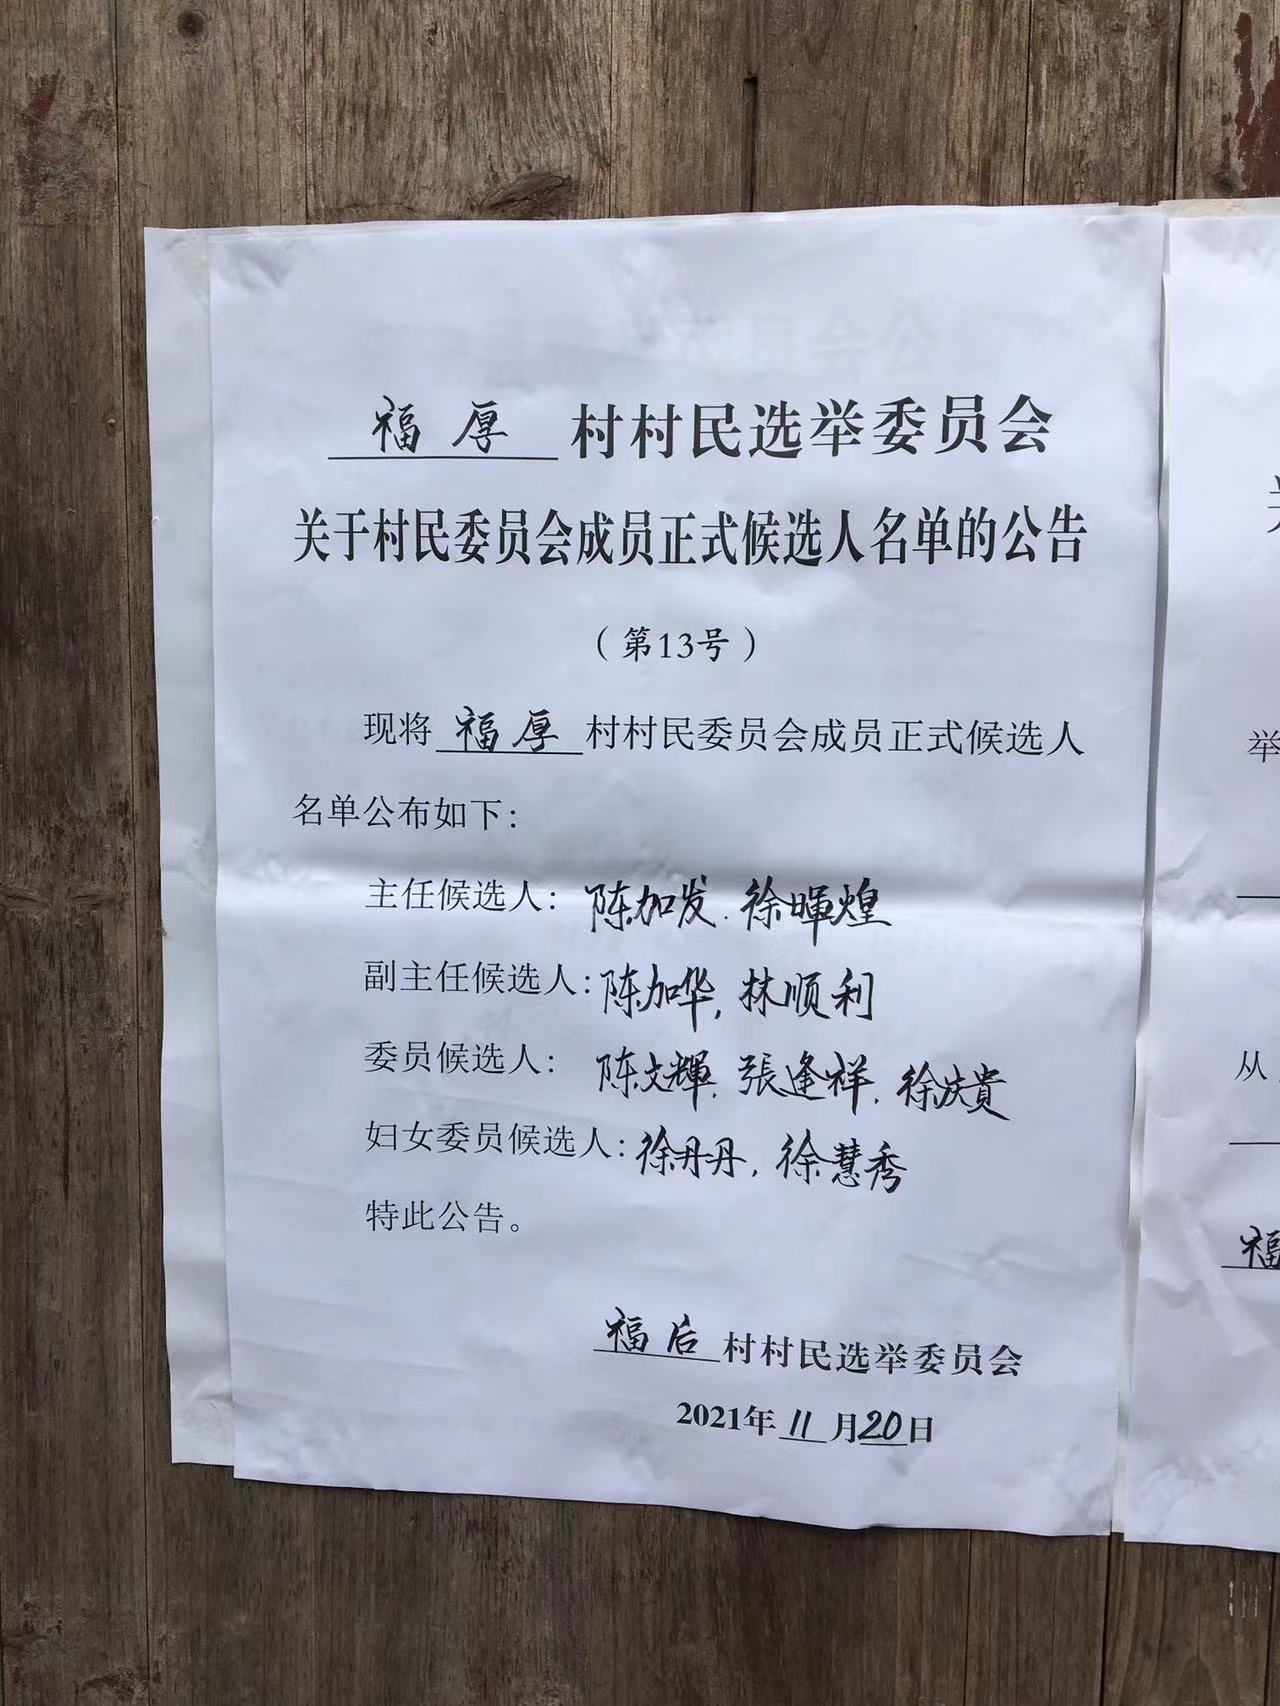 福厚村村民选举委员会
关于村民委员会成员正式候选人名单的公告
（第13号）
现将福厚村村民委员会成员正式候选人
名单公布如下：
主任候选人：陈加发.徐暉煌
副主任候选人：陈加华，林顺利
委员候选人：陈文輝.張逢祥.徐庆貴
妇女委员候选人：徐丹丹，徐慧秀
特此公告。
福后村村民选举委员会
2021年11月20日
举
从
福